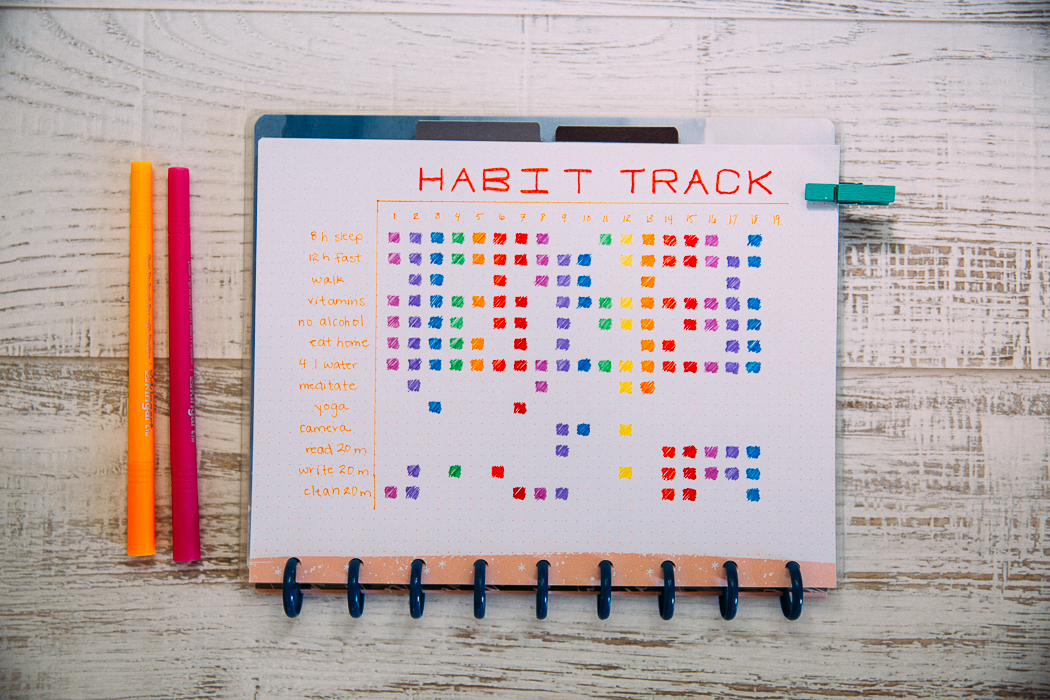 HABIT TRACK
1 2 3 4 5 6 7 8 9 10 11 12 13 14 15 16 17 18 19
8 h sleep
12 h fast
walk
vitamins
no alcohol
eat home
4 l water
meditate
yoga
camera
read 20 m
write 20 m
clean 20 m